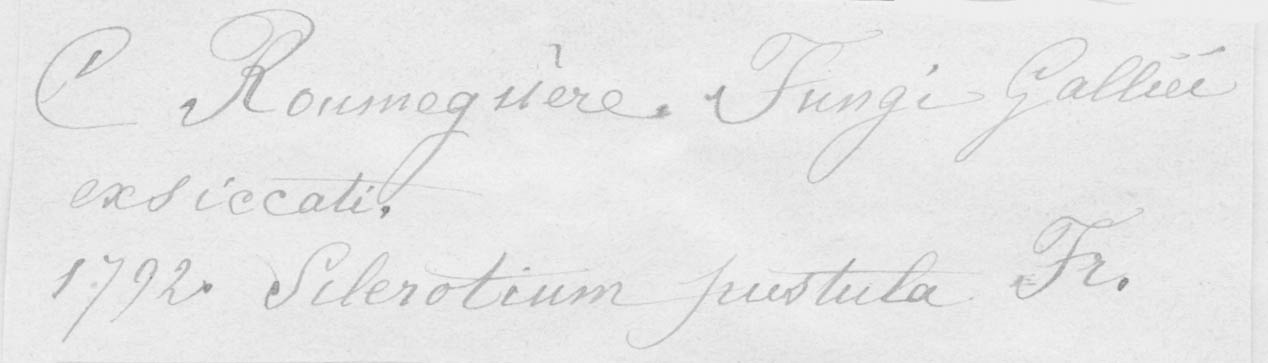 C Roumeguère. Fungi Gallici
exsiccati.
1792. Sclerotium pustula Fr.